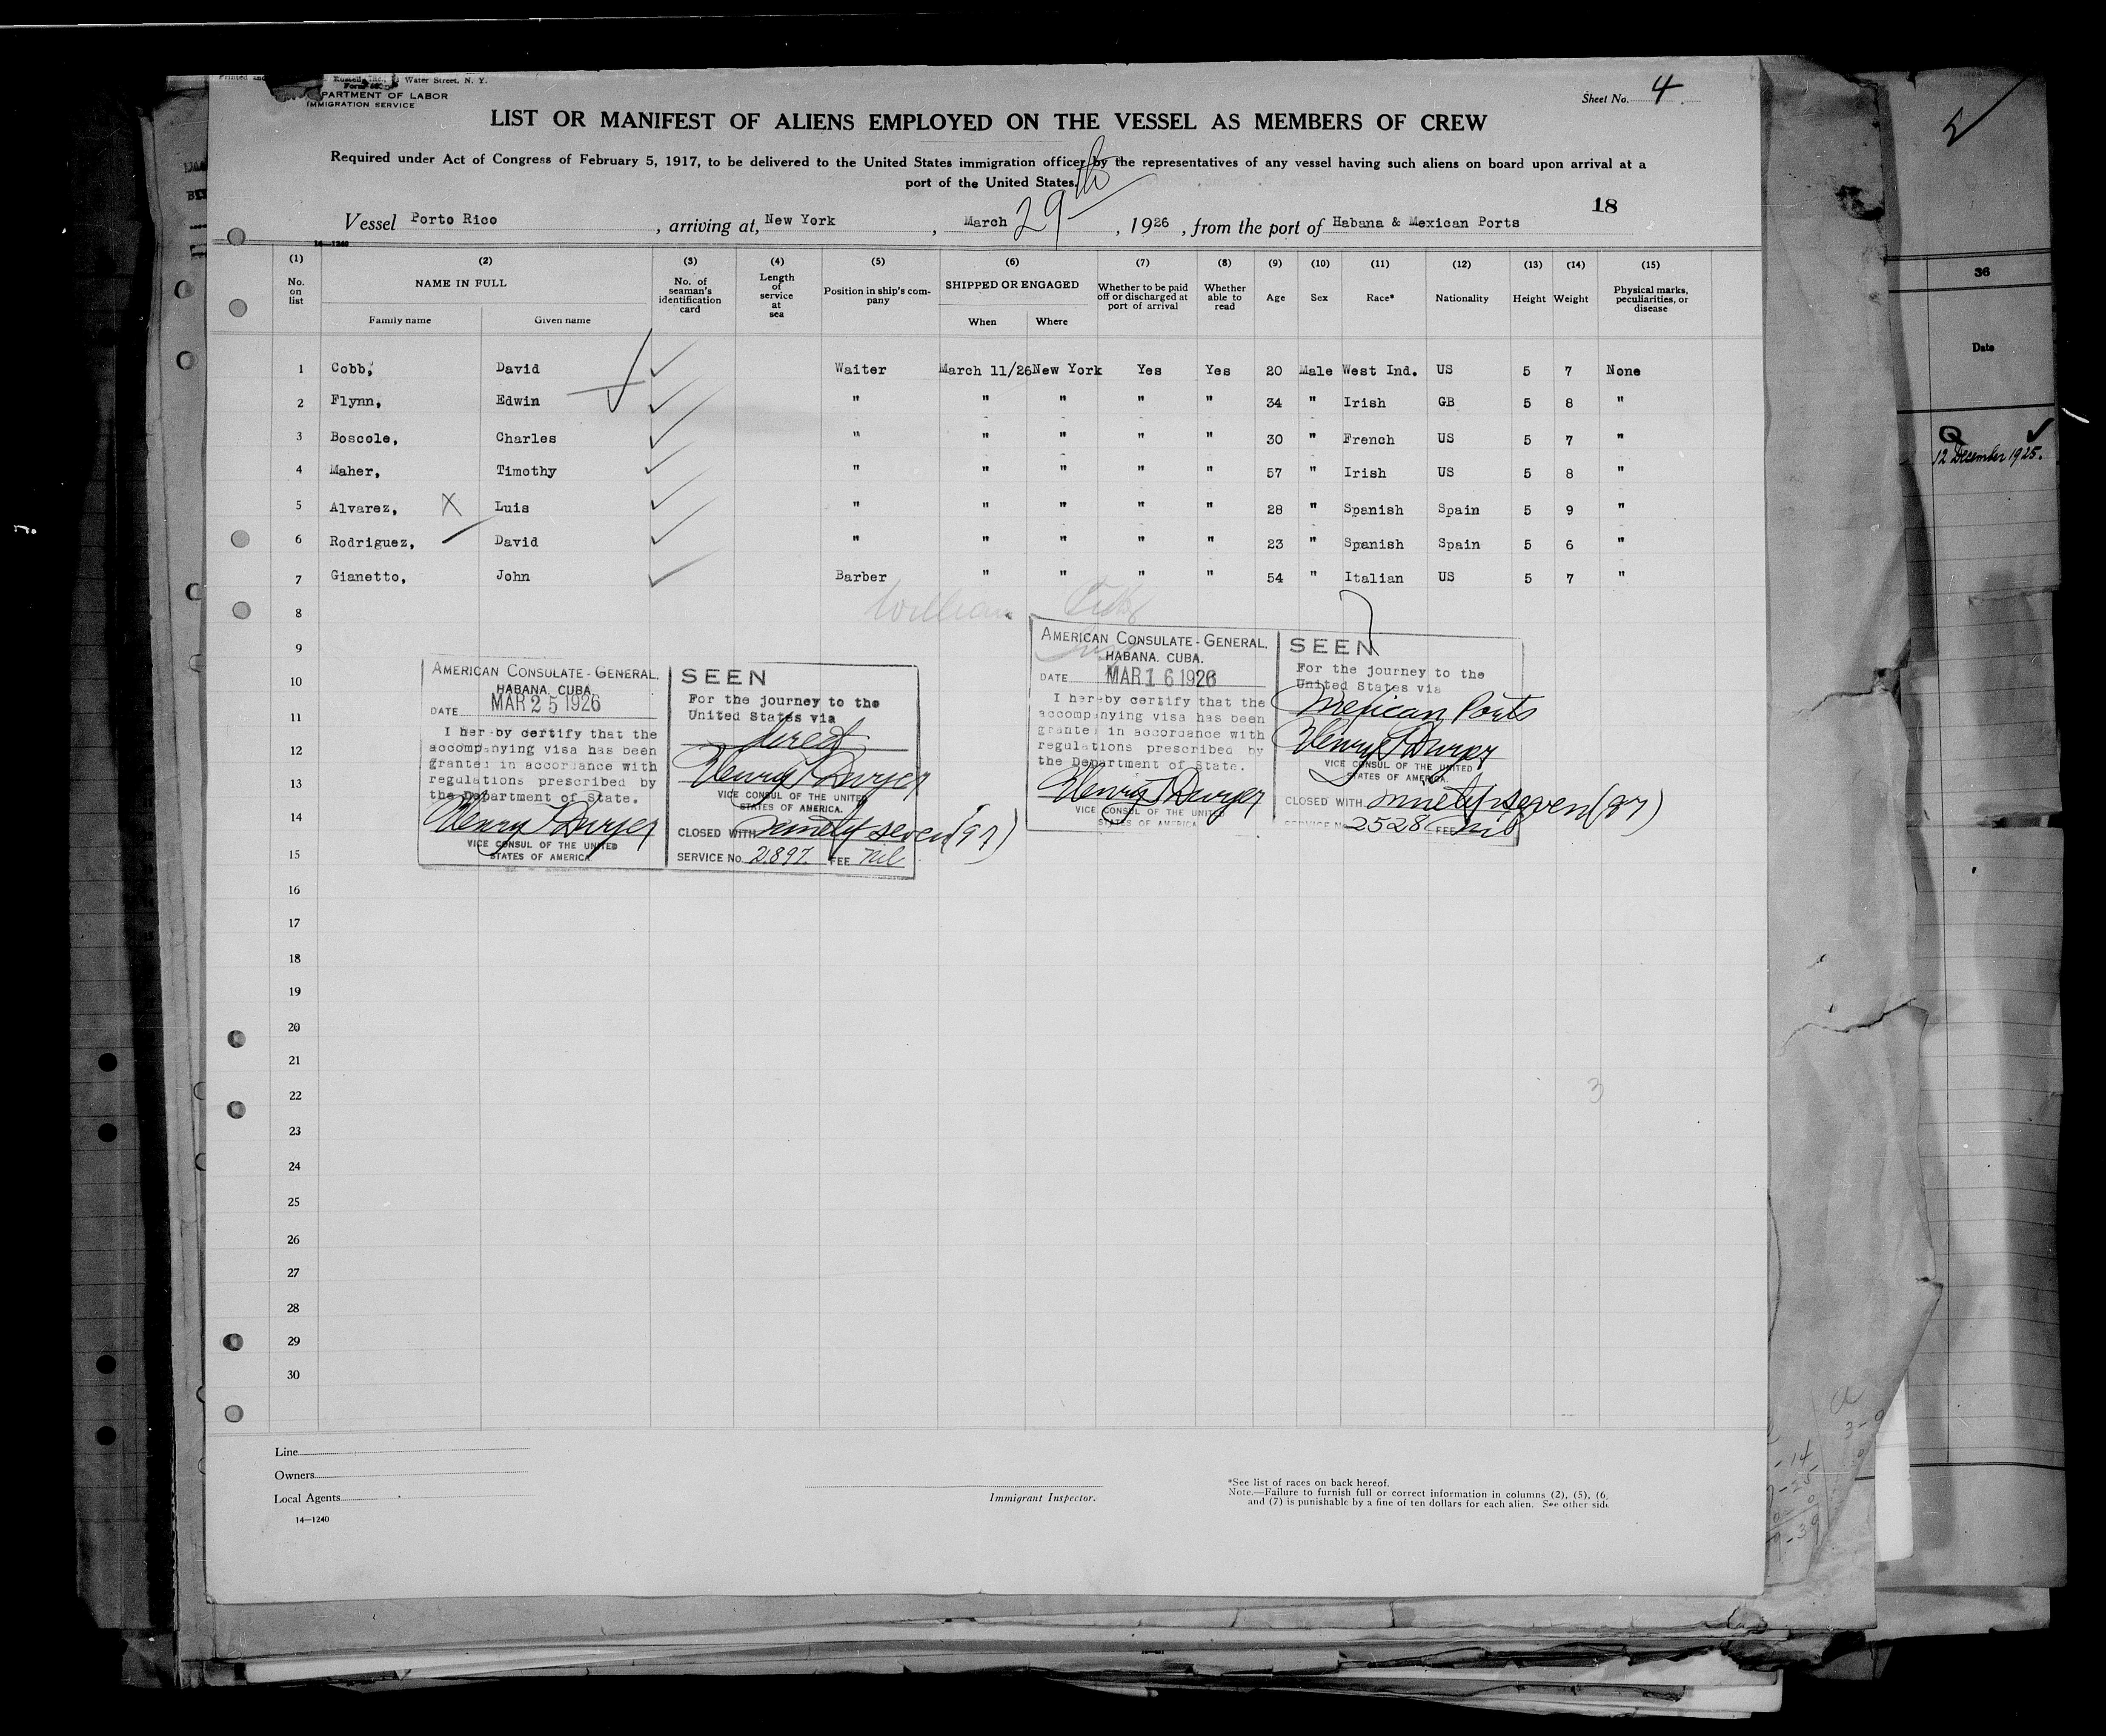 Water Street, N. Y.
PARTMENT OF LABOR
IMMIGRATION SERVICE
Sheet No. 4
LIST OR MANIFEST OF ALIENS EMPLOYED ON THE VESSEL AS MEMBERS OF CREW
Required under Act of Congress of February 5, 1917, to be delivered to the United States immigration officer by the representatives of any vessel having such aliens on board upon arrival at a
port of the United States.
18
Vessel Porto Rico, arriving at, New York, March 29th, 1926, from the port of Habana & Mexican Ports
14-1240
(1) (2) (3) (4) (5) (6) (7) (8) (9) (10) (11) (12) (13) (14) (15)
No. on list NAME IN FULL No. of seaman's identification card Length of service at sea Position in ship's company SHIPPED OR ENGAGED Whether to be paid off or discharged at port of arrival Whether able to read Age Sex Race* Nationality Height Weight Physical marks, peculiarities, or disease
Family name Given name When Where
1 Cobb, David Waiter March 11/26 New York Yes Yes 20 Male West Ind. US 5 7 None
2 Flynn, Edwin " " " " " 34 " Irish GB 5 8 "
3 Boscole, Charles " " " " " 30 " French US 5 7 "
4 Maher, Timothy " " " " " 57 " Irish US 5 8 "
5 Alvarez, X Luis " " " " " 28 " Spanish Spain 5 9 "
6 Rodriguez, David " " " " " 23 " Spanish Spain 5 6 "
7 Gianetto, John Barber " " " " 54 " Italian US 5 7 "
William
8
9
10
11
12
13
14
15
16
17
18
19
20
21
22
23
24
25
26
27
28
29
30
AMERICAN CONSULATE-GENERAL.
HABANA. CUBA.
DATE MAR 25 1926
I hereby certify that the
accompanying visa has been
granted in accordance with
regulations prescribed by
the Department of State.
Henry T Dwyer
VICE CONSUL OF THE UNITED
STATES OF AMERICA
SEEN
For the journey to the
United States via
direct
Henry T Dwyer
VICE CONSUL OF THE UNITED
STATES OF AMERICA.
CLOSED WITH ninety seven (97)
SERVICE No. 2897 FEE Nil
AMERICAN CONSULATE-GENERAL.
HABANA. CUBA.
DATE MAR 16 1926
I hereby certify that the
accompanying visa has been
granted in accordance with
regulations prescribed by
the Department of State.
Henry T Dwyer
VICE CONSUL OF THE UNITED
STATES OF AMERICA
SEEN
For the journey to the
United States via
Mexican Ports
Henry T Dwyer
VICE CONSUL OF THE UNITED
STATES OF AMERICA.
CLOSED WITH ninety seven (97)
SERVICE No. 2528 FEE Nil
3
Line
Owners
Local Agents
14-1240
Immigrant Inspector.
*See list of races on back hereof.
Note.—Failure to furnish full or correct information in columns (2), (5), (6,
and (7) is punishable by a fine of ten dollars for each alien. See other side
36
Date
12 December 1925.